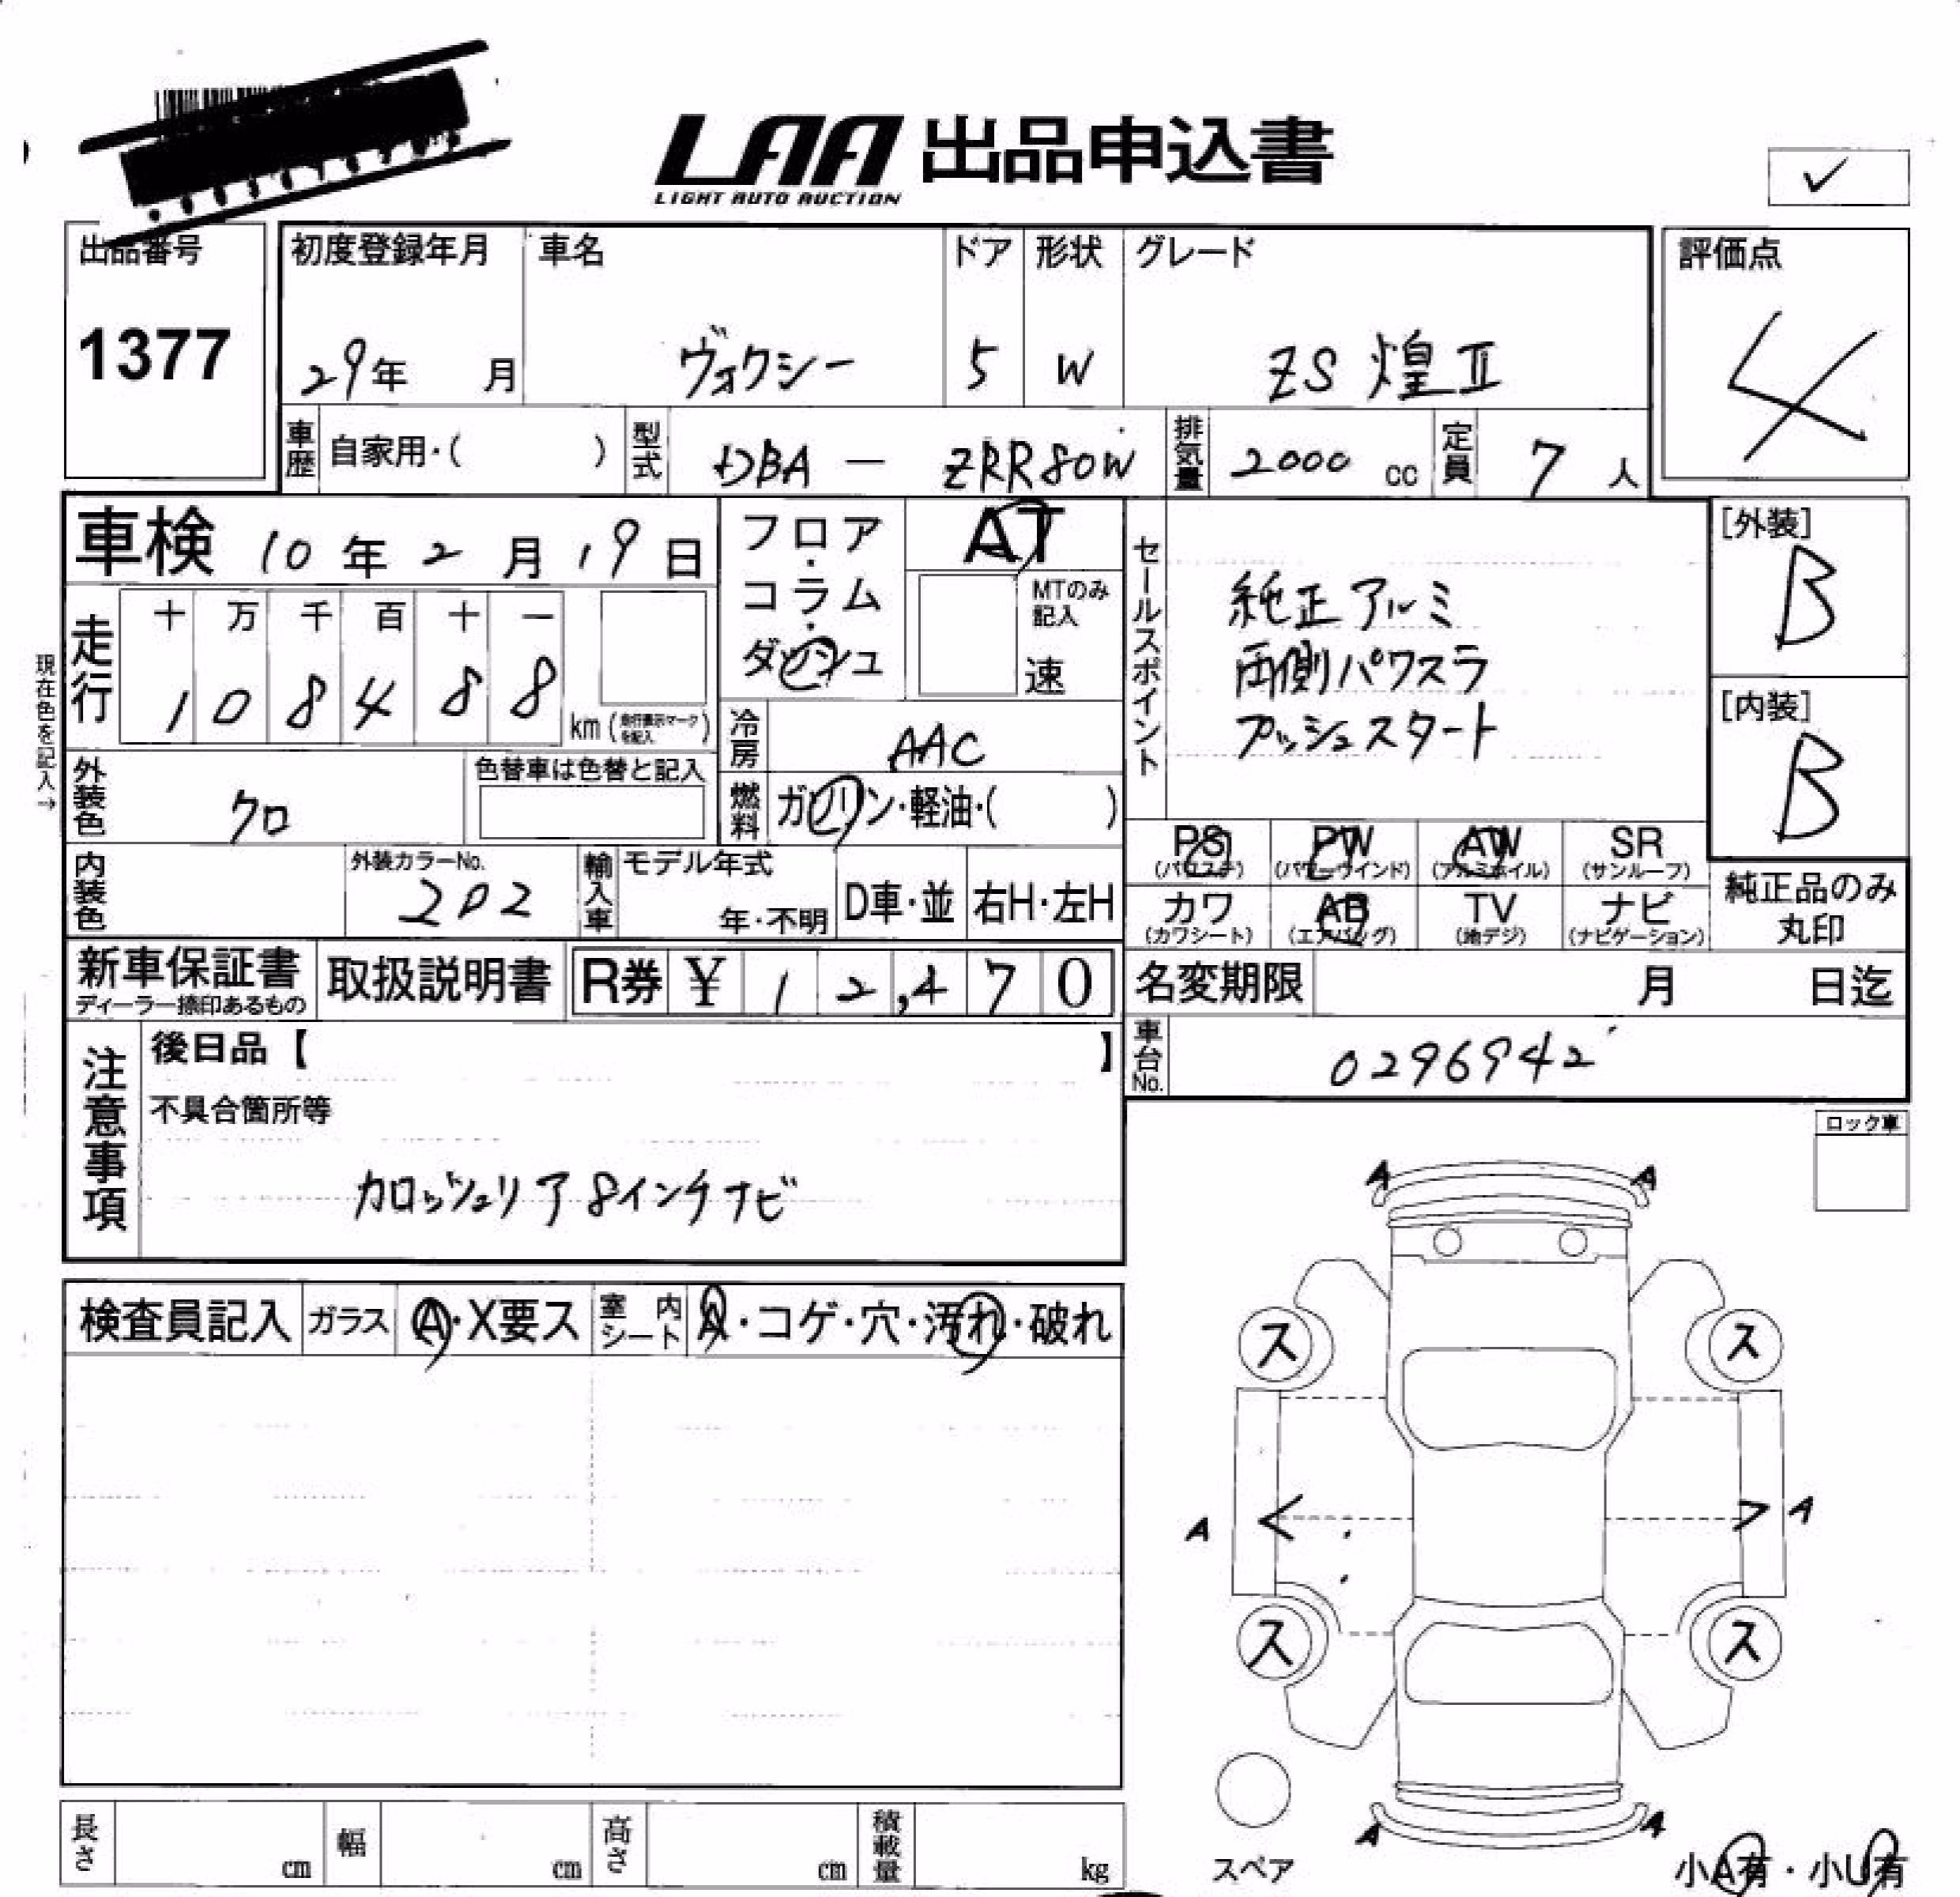 LAA 出品申込書
LIGHT AUTO AUCTION
✓
出品番号
1377
初度登録年月
29年 月
車名
ヴォクシー
ドア
5
形状
W
グレード
ZS 煌Ⅱ
評価点
4
車歴 自家用・( )
型式 DBA - ZRR80W
排気量 2000 cc
定員 7 人
車検 10年2月19日
フロア・コラム・ダッシュ
AT
MTのみ記入
速
走行
十 万 千 百 十 一
1 0 8 4 8 8
km (走行表示マークを記入)
現在色を記入→
冷房 AAC
外装色 クロ
色替車は色替と記入
燃料 ガソリン・軽油・( )
内装色
外装カラーNo.
202
輸入車
モデル年式
年・不明
D車・並
右H・左H
セールスポイント
純正アルミ
両側パワスラ
プッシュスタート
[外装]
B
[内装]
B
PS (パワステ)
PW (パワーウインド)
AW (アルミホイル)
SR (サンルーフ)
カワ (カワシート)
AB (エアバッグ)
TV (地デジ)
ナビ (ナビゲーション)
純正品のみ
丸印
新車保証書
ディーラー捺印あるもの
取扱説明書
R券 ¥ 12,470
名変期限 月 日迄
車台No. 0296942
注意事項
後日品【 】
不具合箇所等
カロッシェリア 8インチナビ
ロック車
検査員記入
ガラス A・X要ス
室内シート A・コゲ・穴・汚れ・破れ
A A
ス ス
A < > A
ス ス
A A
スペア
小A有・小U有
長さ cm
幅 cm
高さ cm
積載量 kg